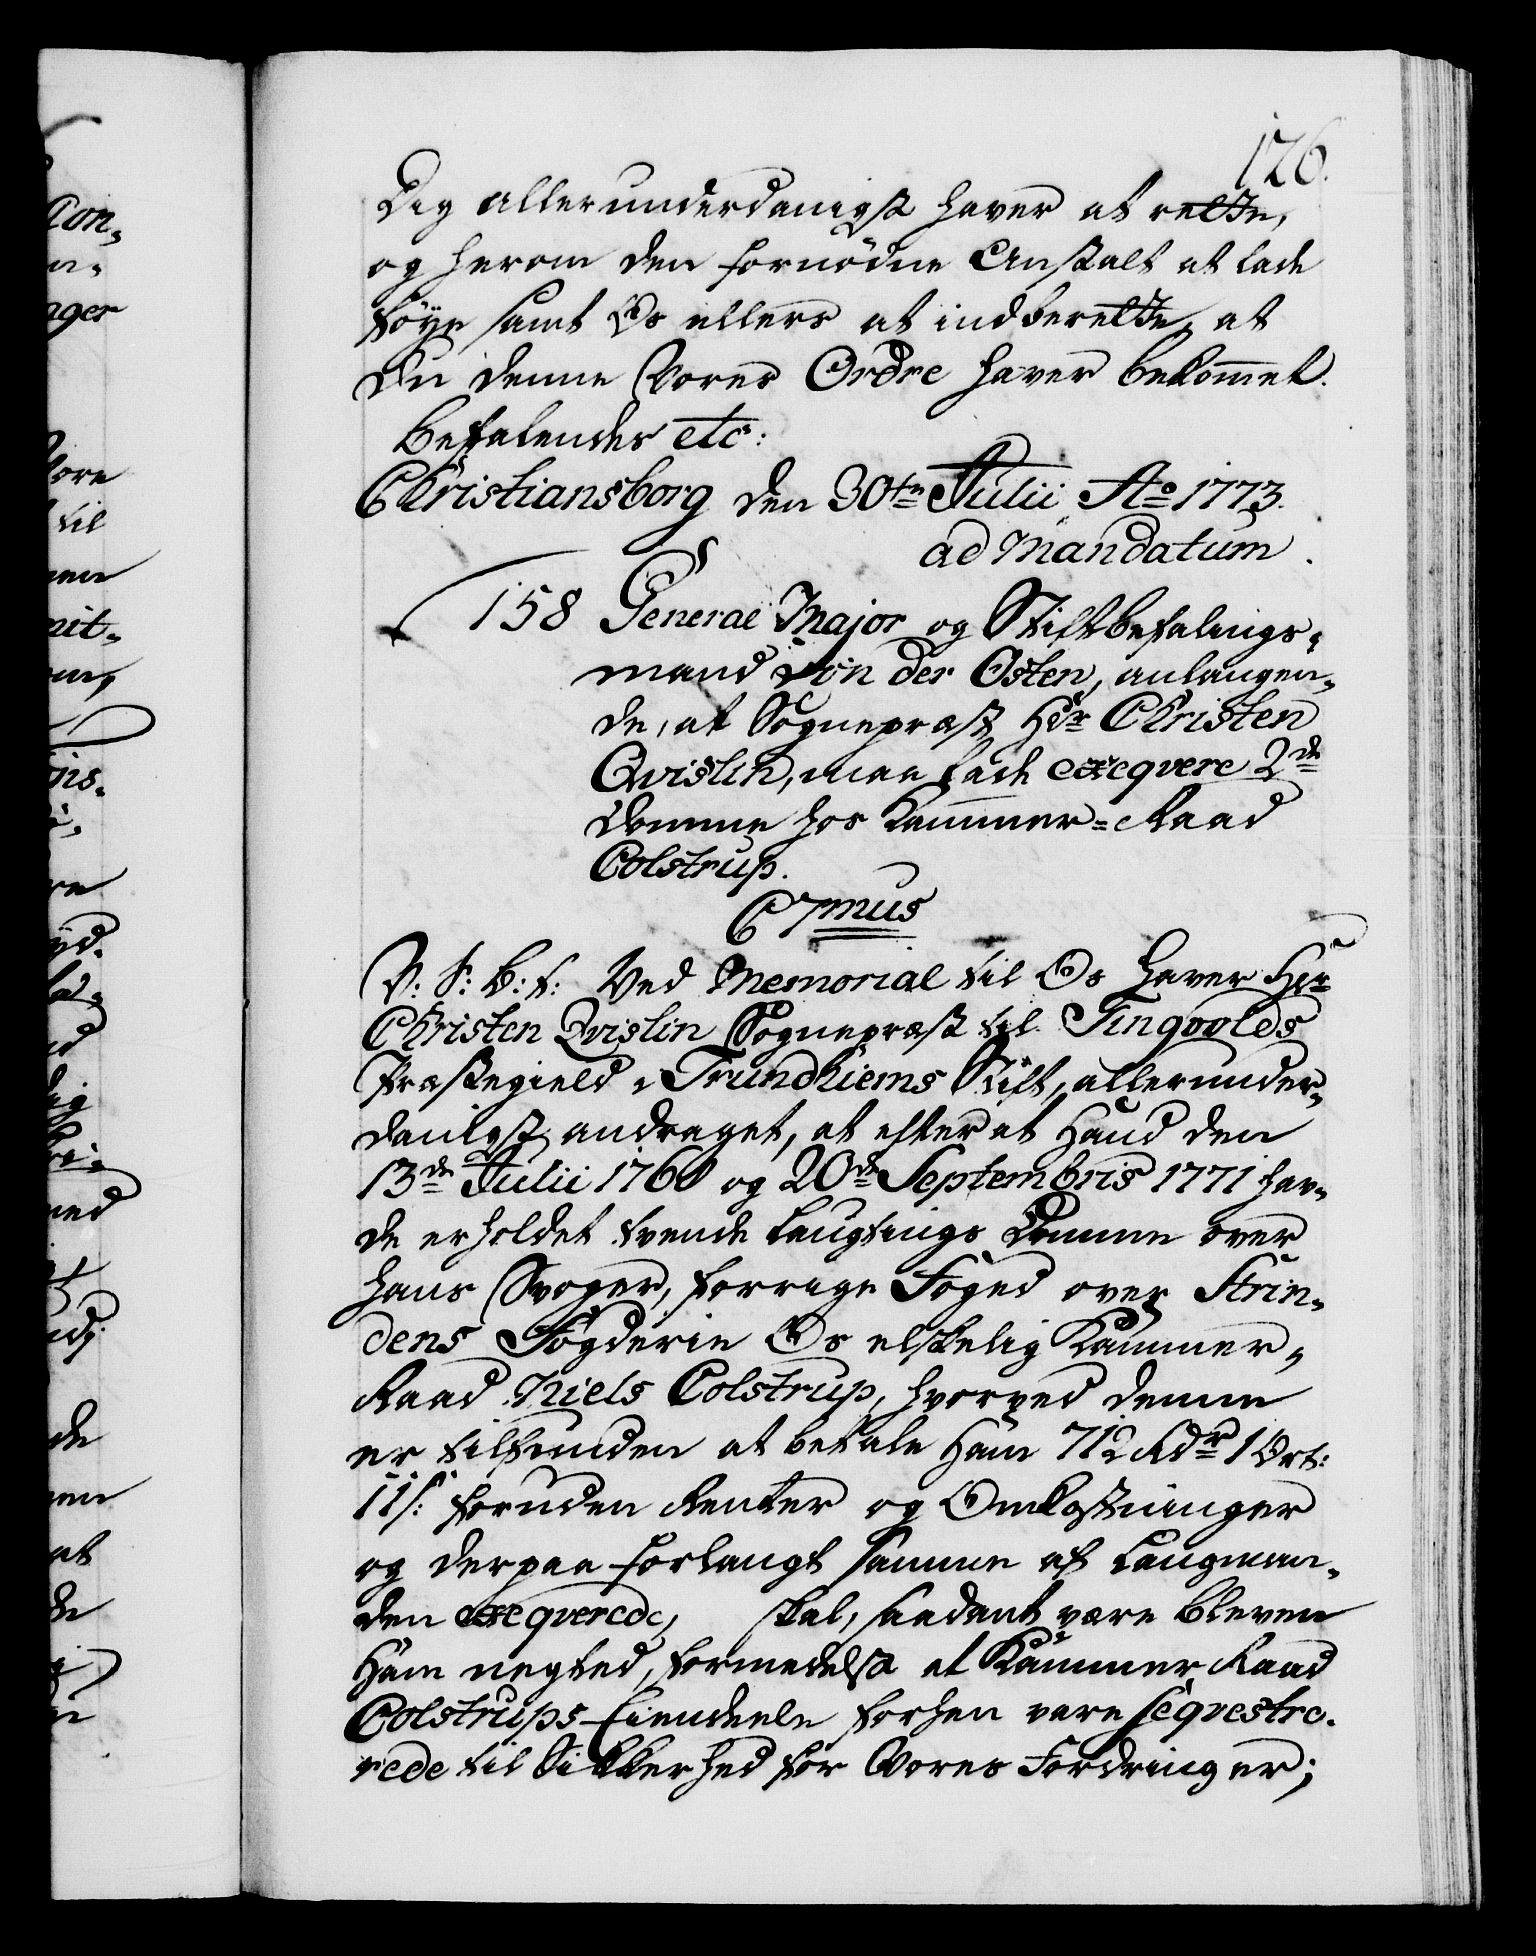 126.
Dig allerunderdanigst haver at rette,
og herom den fornødne Anstalt at lade
føye samt Os ellers at indberette, at
du denne Vores Ordre haver bekommet.
Befalendes etc:
Christiansborg den 30te Julii Ao 1773.
ad Mandatum.
158 General Major og Stiftbefalings-
mand von der Osten, anlangen-
de, at Sognepræst Hr Christen
Qvislin, maa lade exeqvere 2de
Domme hos Kammer-Raad
Colstrup.
C 7mus
V: S: B: t: Ved Memorial til Os haver Hr
Christen Qvislin Sognepræst til Tingvolds
Præstegield i Trundhiems Stift, allerunder-
danigst andraget, at efter at Hand den
13de Julii 1760 og 20de Septembris 1771 hav-
de erholdet tvende Laugtings Domme over
hans Svoger, forrige Foged over Strin-
dens Fogderie Os elskelig Kammer-
Raad Niels Colstrup, hvorved denne
er tilfunden at betale Ham 712 Rdr 1 Ort:
11 s: foruden Renter og Omkostninger
og derpaa forlangt samme af Laugman-
den exeqverede, skal, saadant være bleven
Ham negted, formedelst at Kammer Raad
Colstrups Eiendeele forhen vare seqvestre-
rede til Sikkerhed for Vores Fordringer;